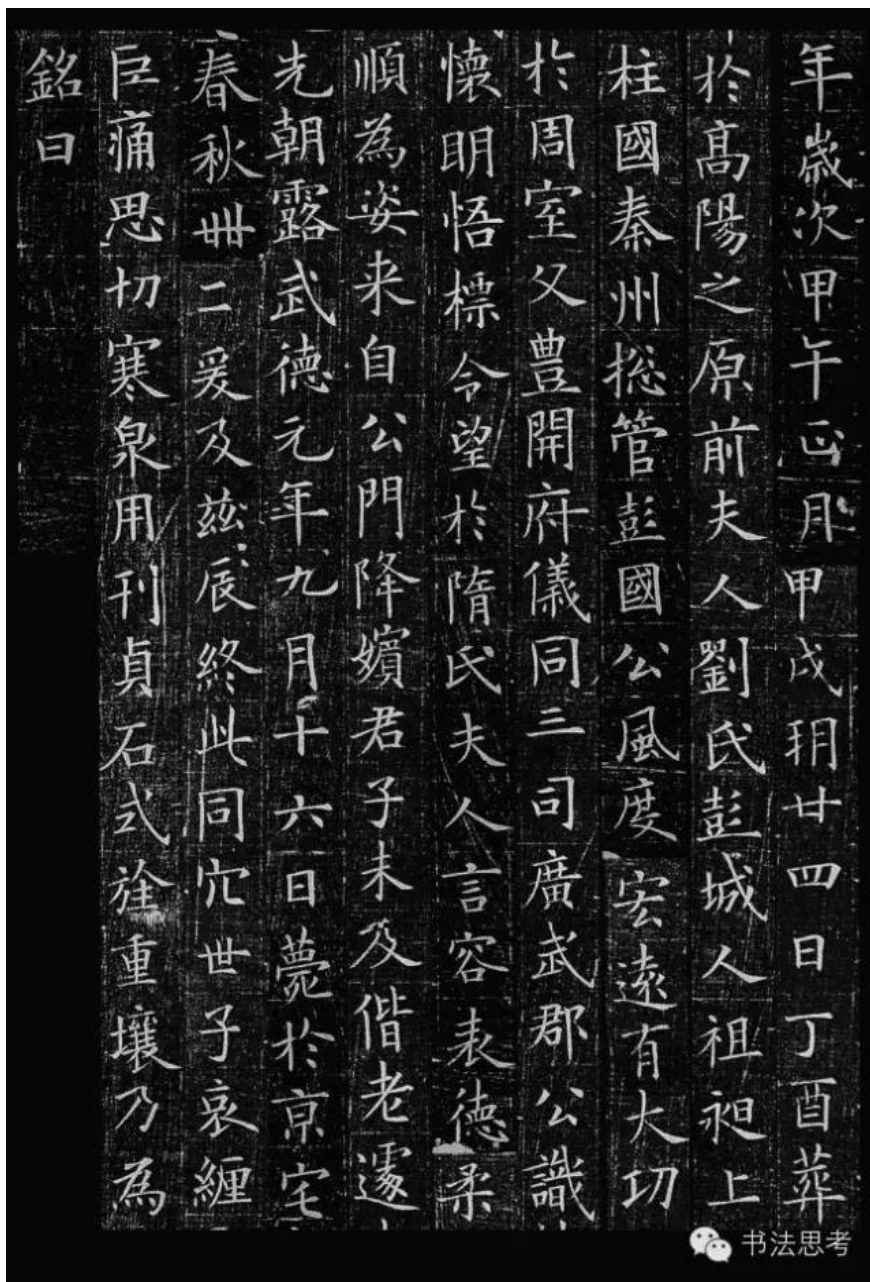 年歲次甲午正月甲戌玥廿四日丁酉葬
於高陽之原前夫人劉氏彭城人祖昶上
柱國秦州揔管彭國公風度宏遠有大功
於周室父豊開府儀同三司廣武郡公識
懷明悟標令望於隋氏夫人言容表德柔
順為姿来自公門降嬪君子未及偕老遽
先朝露武德元年九月十六日薨於京宅
春秋卌二爰及茲辰終此同穴世子哀纏
巨痛思切寒泉用刊貞石式旌重壤乃為
銘曰
书法思考